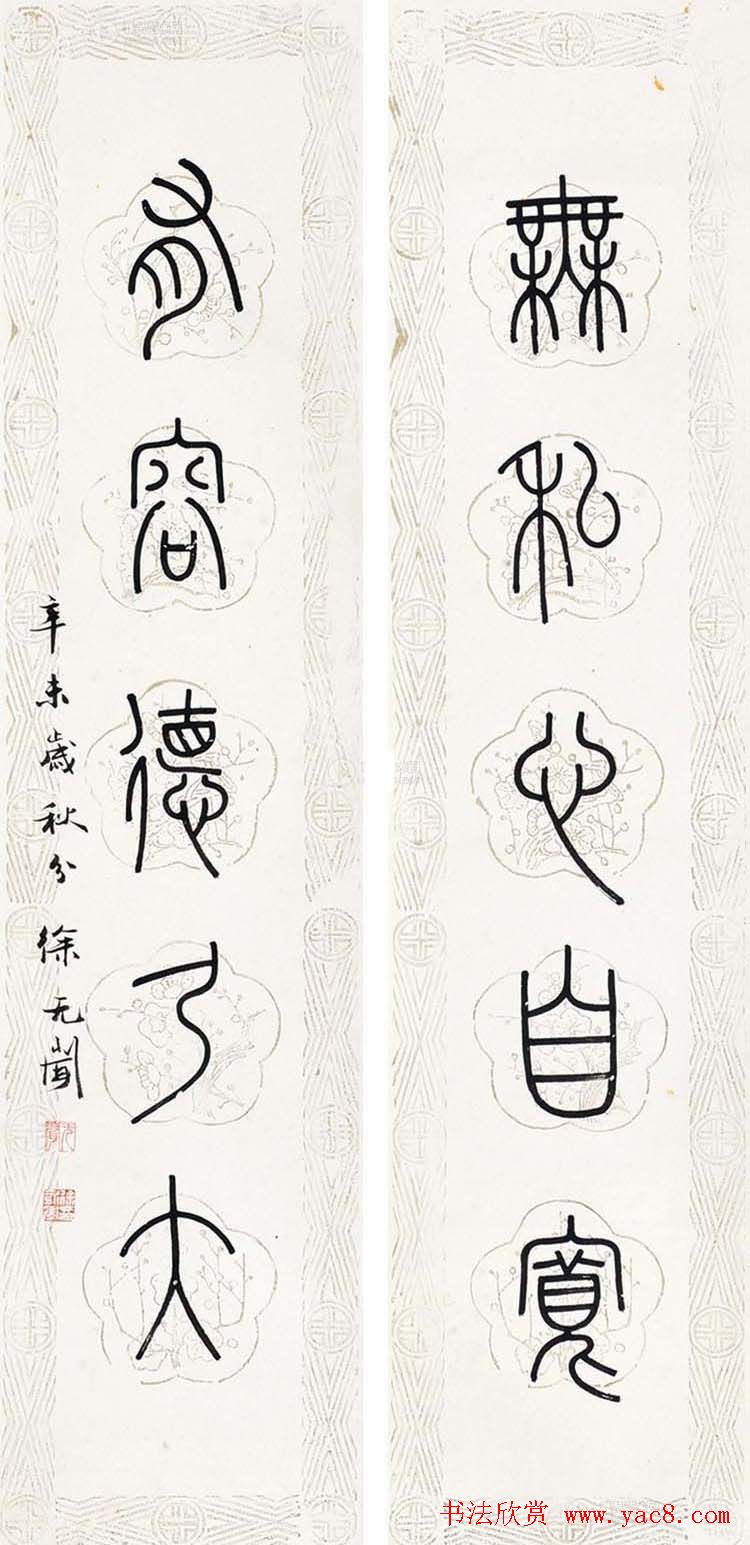 無私心自寬
有容德乃大
辛未歲秋分徐无聞
书法欣赏 www.yac8.com